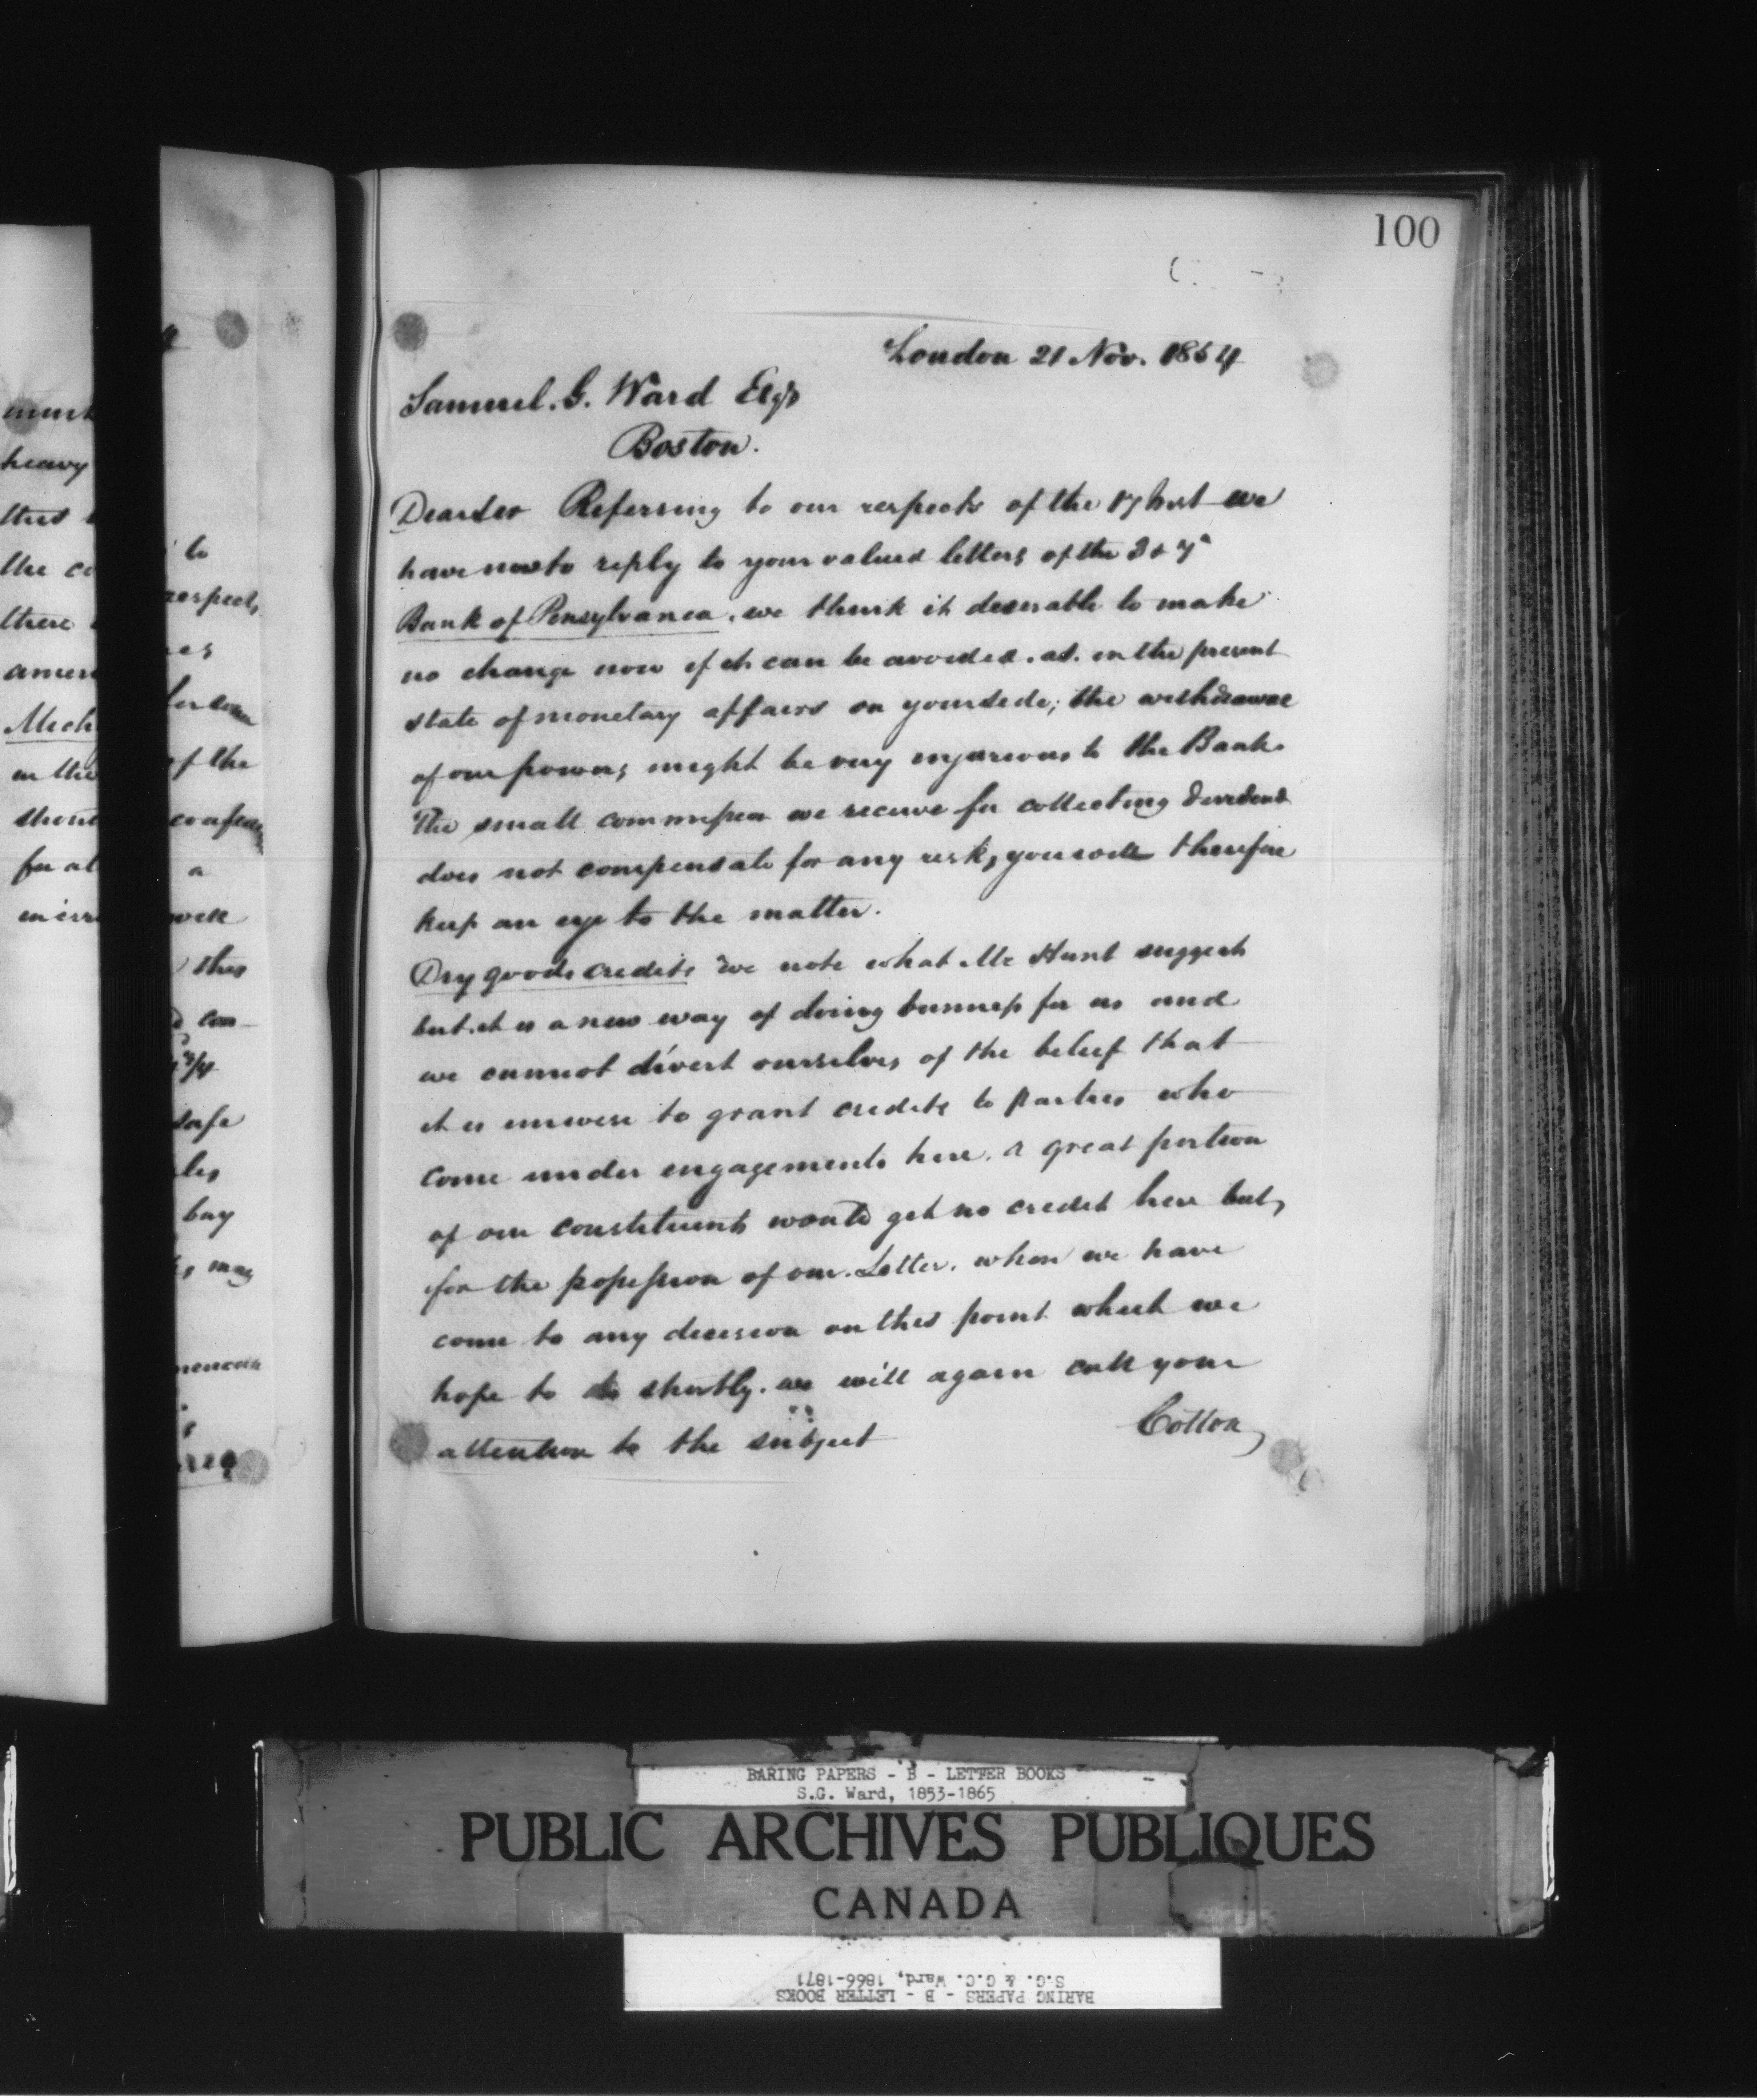 100
London 21 Nov. 1854
Samuel. G. Ward Esqr
Boston.
Dear Sir Referring to our respects of the 17 Inst we
have now to reply to your valued letters of the 3 & 7"
Bank of Pensylvania. we think it desirable to make
no change now if it can be avoided. as. in the present
state of monetary affairs on your side; the withdrawal
of our powers might be very injurious to the Bank.
The small commission we receive for collecting dividends
does not compensate for any risk, you will therefore
keep an eye to the matter.
Dry goods credits We note what Mr Hunt suggests
but it is a new way of doing business for us and
we cannot divest ourselves of the belief that
it is unwise to grant credits to parties who
come under engagements here. A great portion
of our constituents would get no credit here but,
for the possession of our Letter. when we have
come to any decision on this point which we
hope to do shortly. we will again call your
attention to the subject
Cotton
must
heavy
this
the co
there
ameri
Mech
in the
short
for al
to
respects
of the
a
well
this
con
safe
bay
may
BARING PAPERS - B - LETTER BOOKS
S.G. Ward, 1853-1865
PUBLIC ARCHIVES PUBLIQUES
CANADA
S.G. & G.C. Ward, 1866-1871
BARING PAPERS - B - LETTER BOOKS